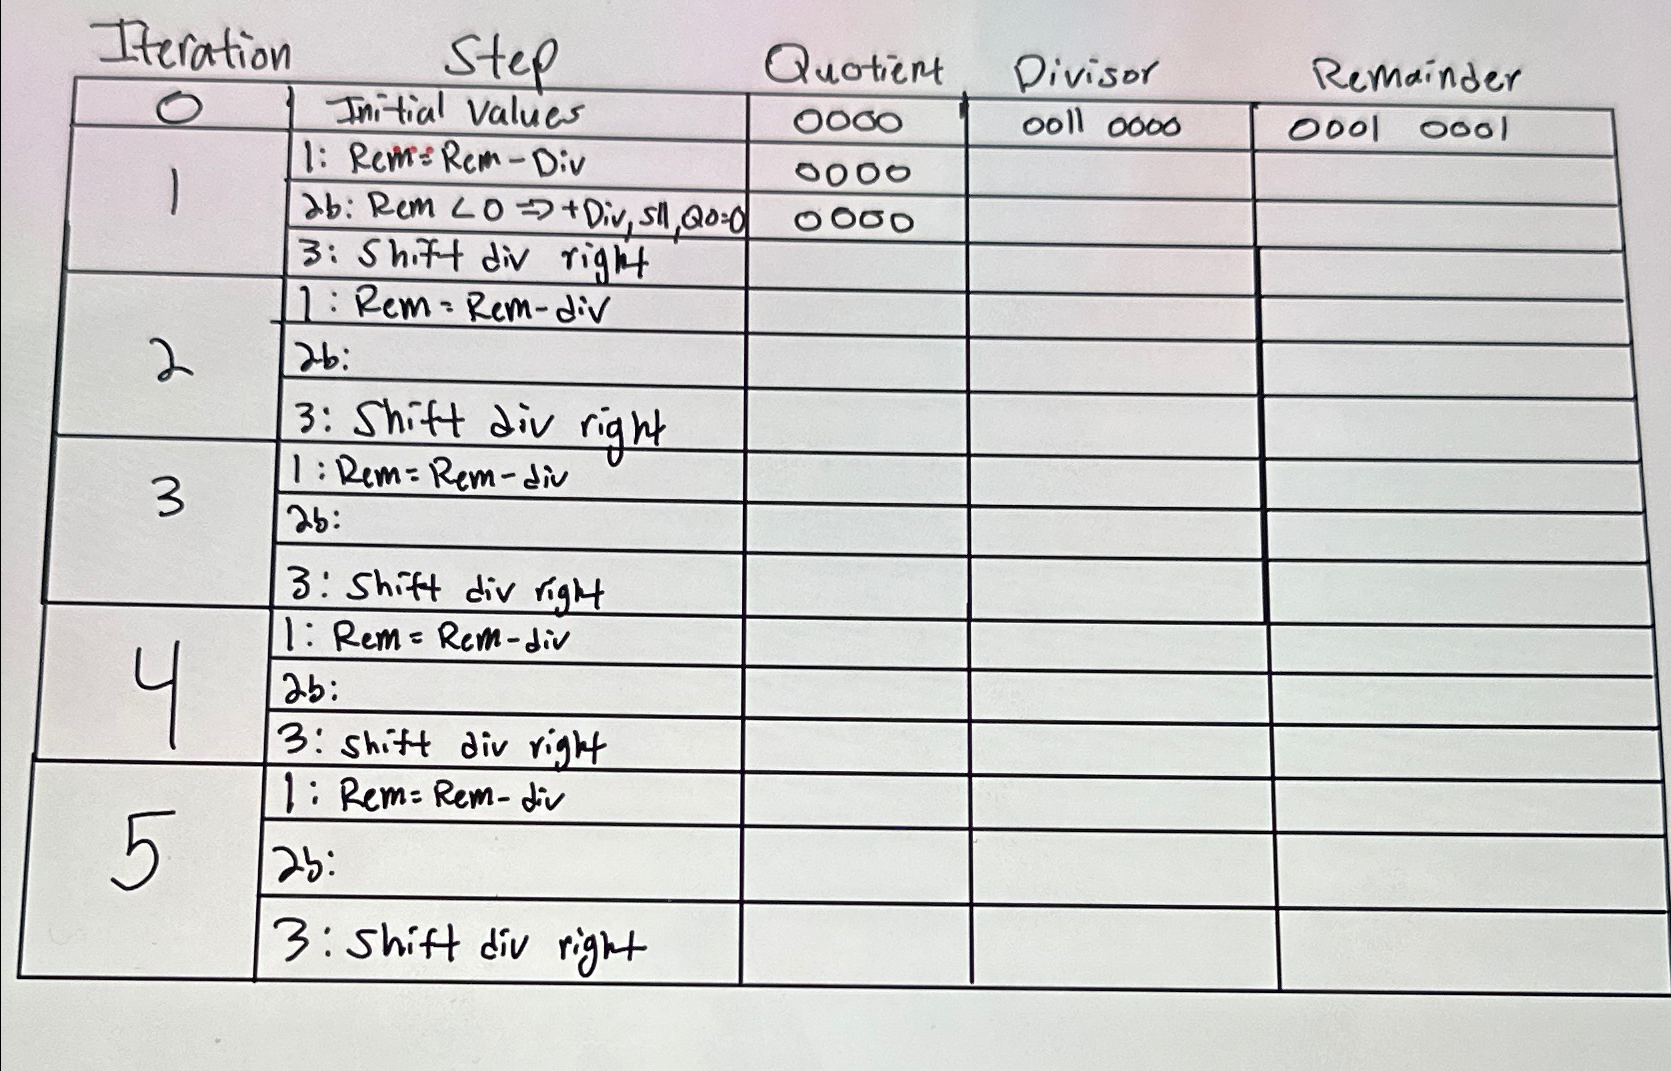 Iteration Step Quotient Divisor Remainder
0 Initial Values 0000 0011 0000 0001 0001
1 1: Rem = Rem - Div 0000
2b: Rem < 0 => +Div, sll, Q0=0 0000
3: Shift div right
2 1: Rem = Rem - div
2b:
3: Shift div right
3 1: Rem = Rem - div
2b:
3: Shift div right
4 1: Rem = Rem - div
2b:
3: shift div right
5 1: Rem = Rem - div
2b:
3: shift div right